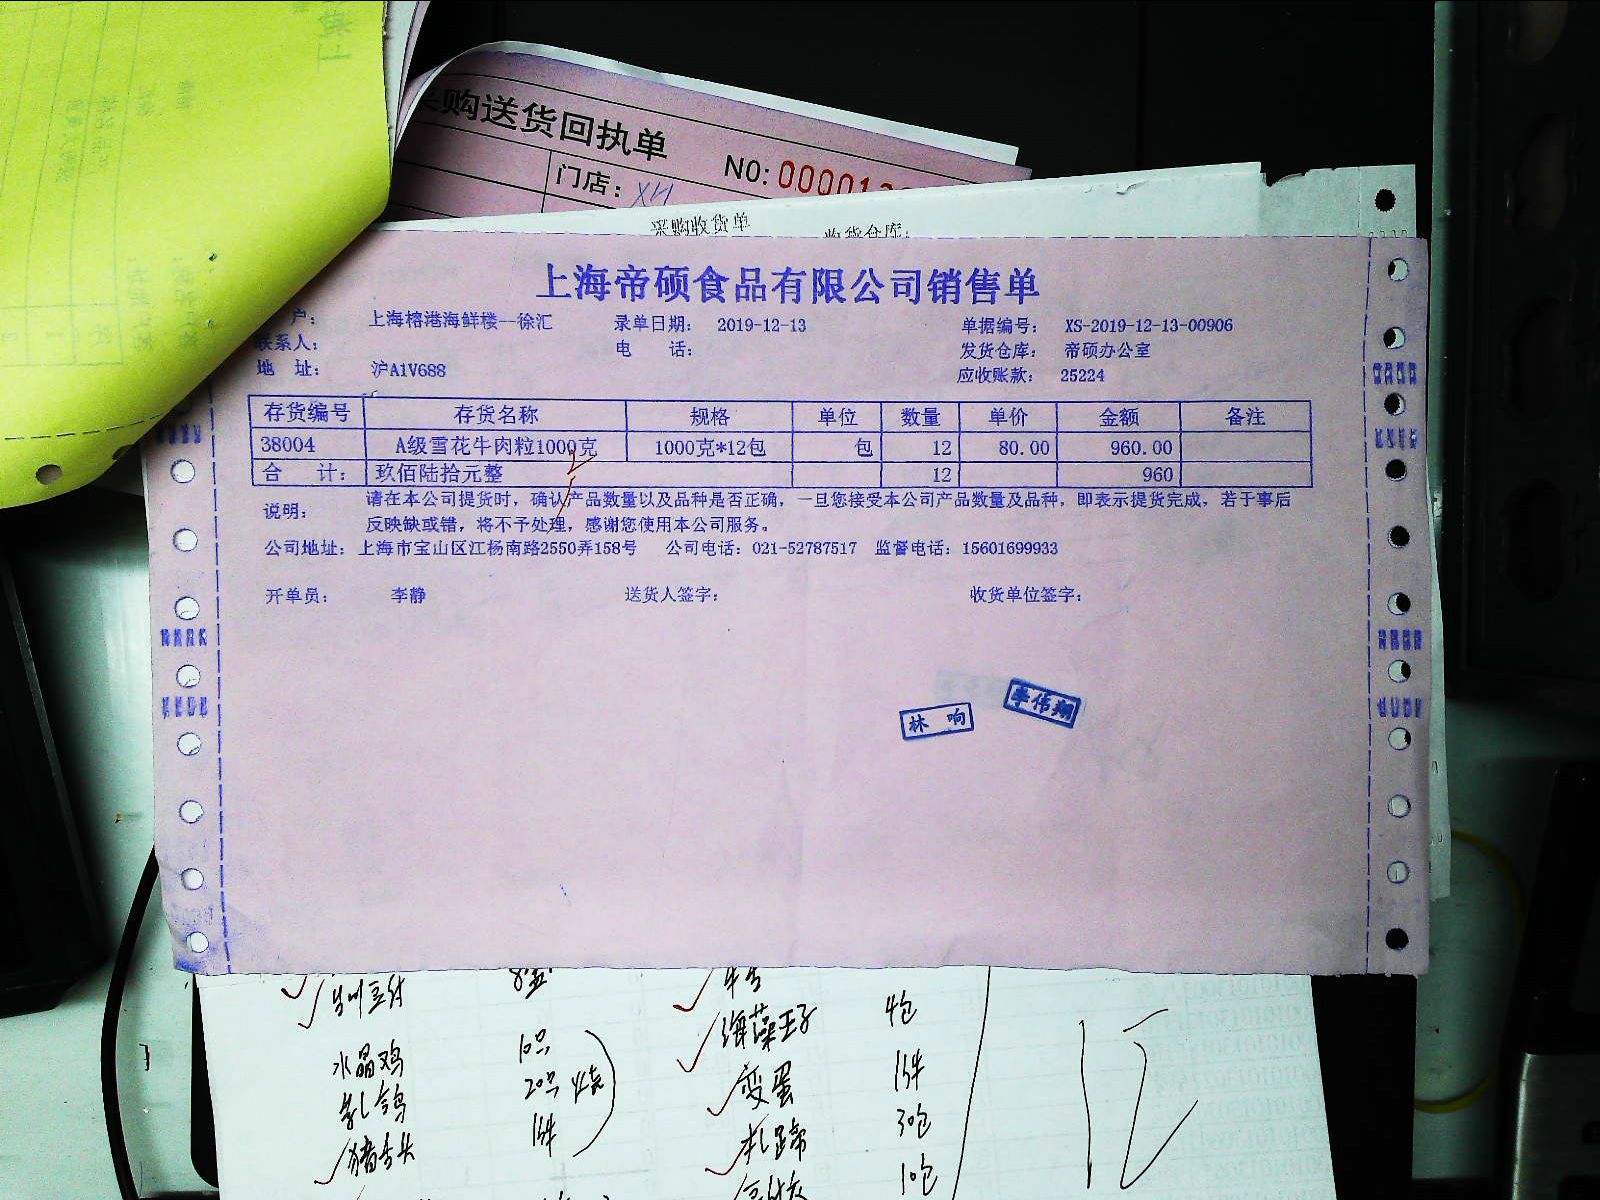 购送货回执单
NO: 00001
门店：
采购收货单
收货仓库：
上海帝硕食品有限公司销售单
户： 上海榕港海鲜楼--徐汇 录单日期： 2019-12-13 单据编号： XS-2019-12-13-00906
联系人： 电 话： 发货仓库： 帝硕办公室
地 址： 沪A1V688 应收账款： 25224
存货编号 存货名称 规格 单位 数量 单价 金额 备注
38004 A级雪花牛肉粒1000克 1000克*12包 包 12 80.00 960.00
合 计： 玖佰陆拾元整 12 960
说明： 请在本公司提货时，确认产品数量以及品种是否正确，一旦您接受本公司产品数量及品种，即表示提货完成，若于事后
反映缺或错，将不予处理，感谢您使用本公司服务。
公司地址：上海市宝山区江杨南路2550弄158号 公司电话：021-52787517 监督电话：15601699933
开单员： 李静 送货人签字： 收货单位签字：
林 响
李伟翔
8盒
水晶鸡 10只
乳鸽 20只
猪舌头 1件
4包
变蛋 1件
扎蹄 30包
10包